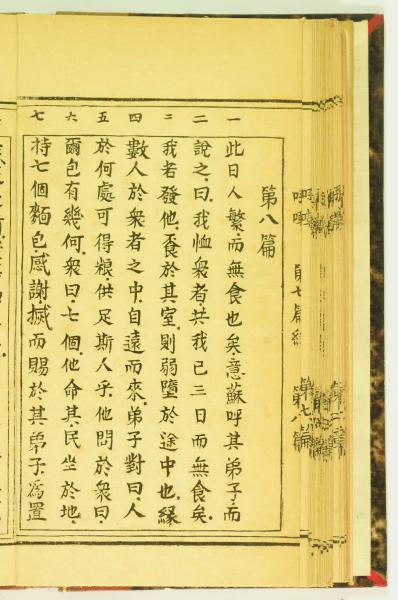 第八篇
一 此日人繁而無食也矣.意蘇呼其弟子.而
二 說之.曰.我恤衆者.共我已三日而無食矣.
三 我若發他.夭於其室.則弱墮於途中也.緣
四 數人於衆者之中.自遠而來.弟子對曰.人
五 於何處可得粮.供足斯人乎.他問於衆曰.
六 爾包有幾何.衆曰.七個.他命其民坐於地.
七 持七個麵包.感謝.搣而賜於其弟子.爲置
第七篇終
第八篇